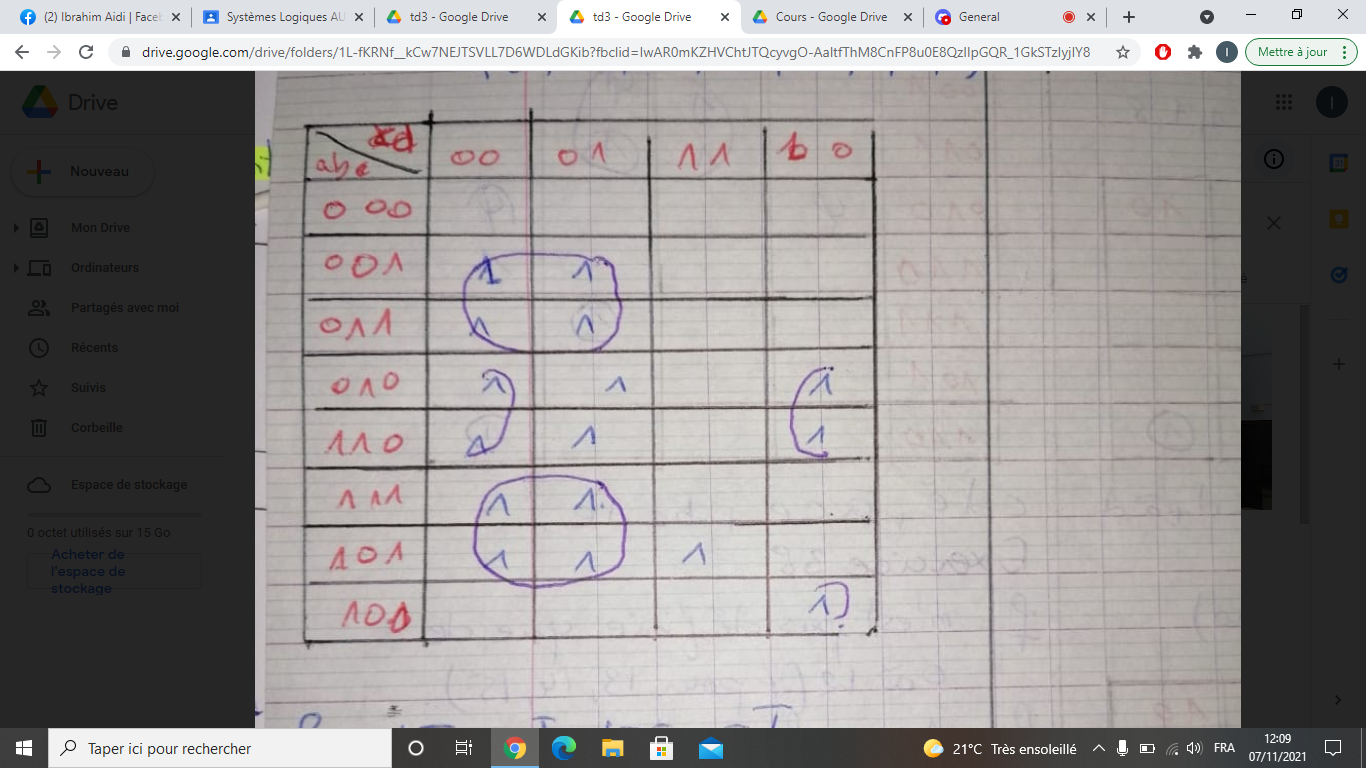 (2) Ibrahim Aidi | Faceb
Systèmes Logiques AU
td3 - Google Drive
td3 - Google Drive
Cours - Google Drive
General
drive.google.com/drive/folders/1L-fKRNf__kCw7NEJTSVLL7D6WDLdGKib?fbclid=IwAR0mKZHVChtJTQcyvgO-AaltfThM8CnFP8u0E8QzIIpGQR_1GkSTzIyjlY8
I
Mettre à jour
Drive
Nouveau
Mon Drive
Ordinateurs
Partagés avec moi
Récents
Suivis
Corbeille
Espace de stockage
0 octet utilisés sur 15 Go
Acheter de
l'espace de
stockage
I
00 01 11
abe
0 00
001 1 1
011 1 1
010 1 1 1
110 1 1 1
111 1 1
101 1 1 1
1
Taper ici pour rechercher
21°C Très ensoleillé
FRA
12:09
07/11/2021